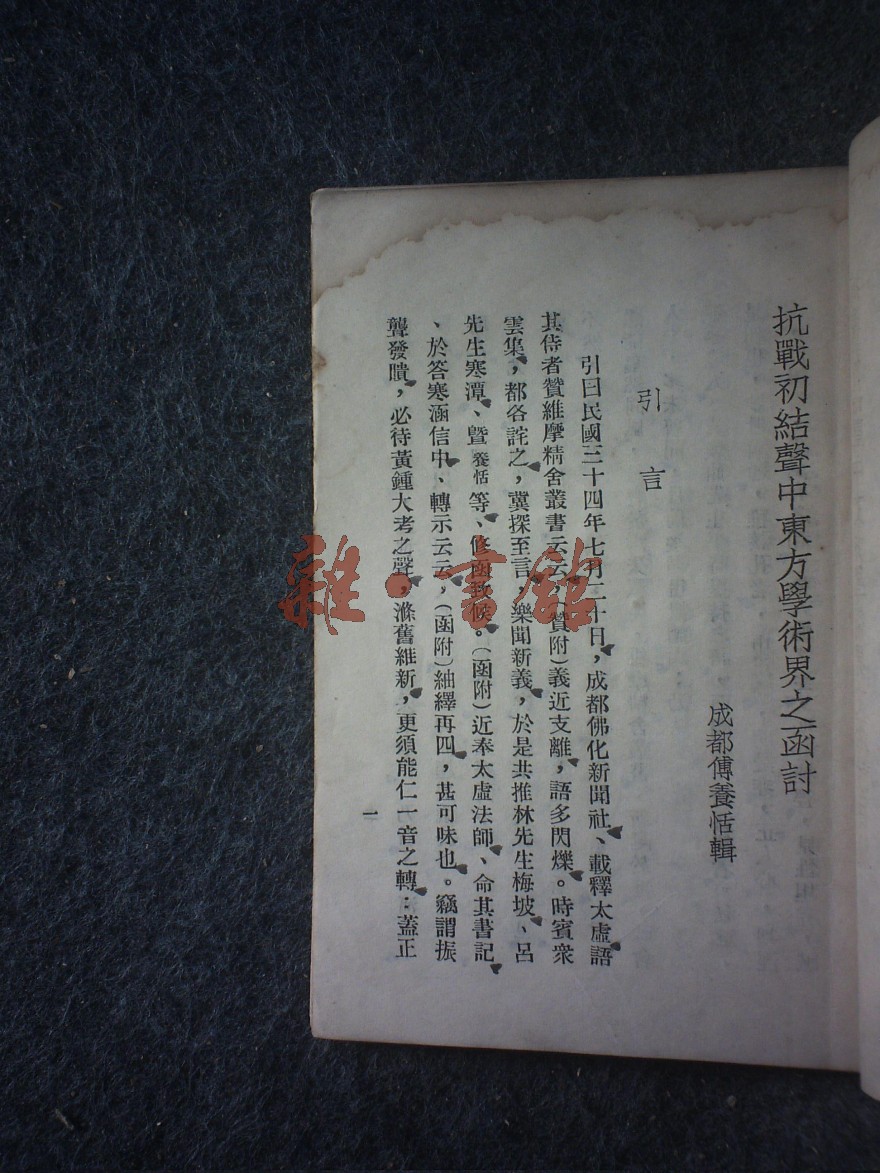 抗戰初結聲中東方學術界之函討
成都傅養恬輯
引言
引曰民國三十四年七月二十日，成都佛化新聞社、載釋太虛語
其侍者贊維摩精舍叢書云云，（贊附）義近支離，語多閃爍。時賓衆
雲集，都各詫之，冀探至言，樂聞新義，於是共推林先生梅坡、呂
先生寒潭、暨養恬等、修函致候。（函附）近奉太虛法師、命其書記
、於答寒涵信中、轉示云云，（函附）紬繹再四，甚可味也。竊謂振
聾發聵，必待黃鍾大考之聲，滌舊維新，更須能仁一音之轉：蓋正
一
雜·書館